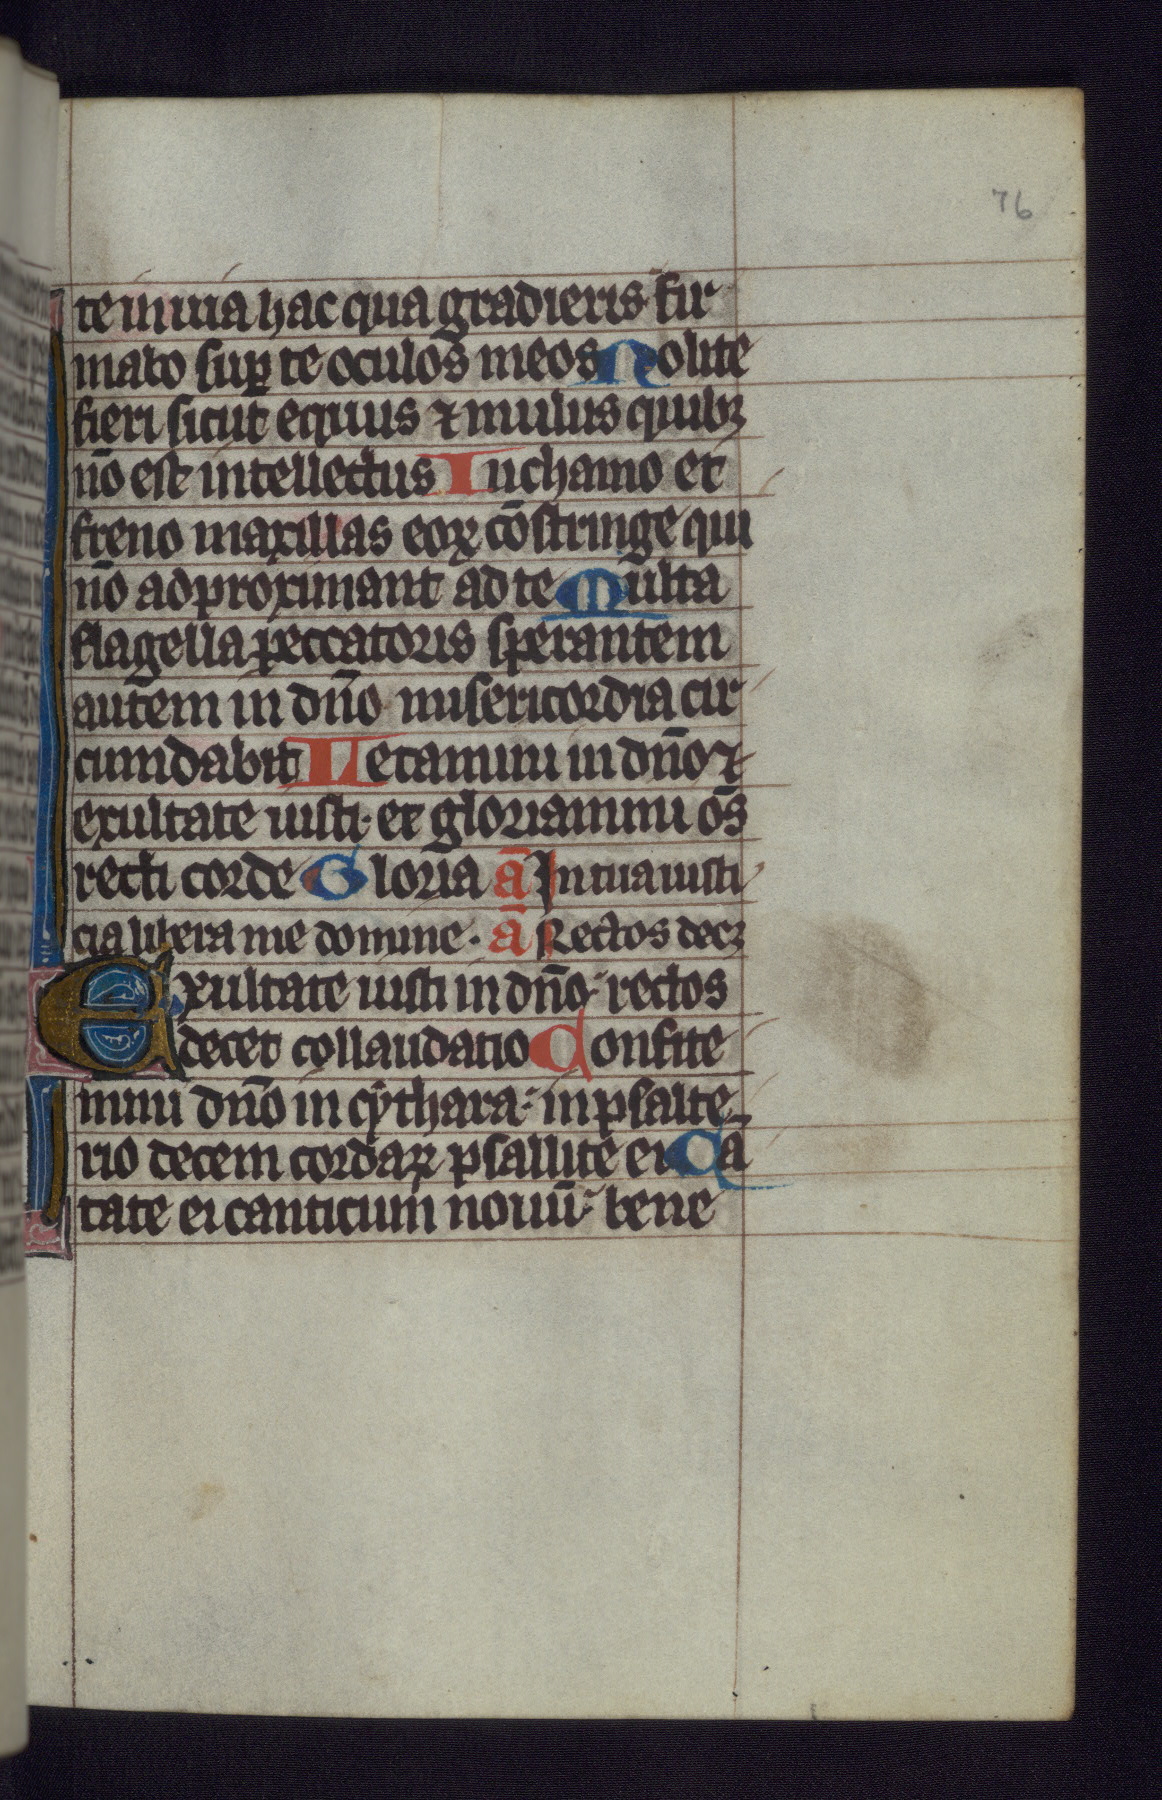 76
te in uia hac qua gradieris fir
mabo sup te oculos meos Nolite
fieri sicut equus ⁊ mulus quibꝫ
nō est intellectus In chamo et
freno maxillas eoꝝ cōstringe qui
nō adproximant ad te Multa
flagella peccatoris sperantem
autem in dn̄o misericordia cir
cumdabit Letamini in dn̄o ⁊
exultate iusti· et gloriamini os̄
recti corde Gloria ā In tua iusti
cia libera me domine · ā Rectos decꝫ
Exultate iusti in dn̄o rectos
decet collaudatio Confite
mini dn̄o in cythara: in psalte
rio decem cordaꝝ psallite ei Cā
tate ei canticum nouū bene